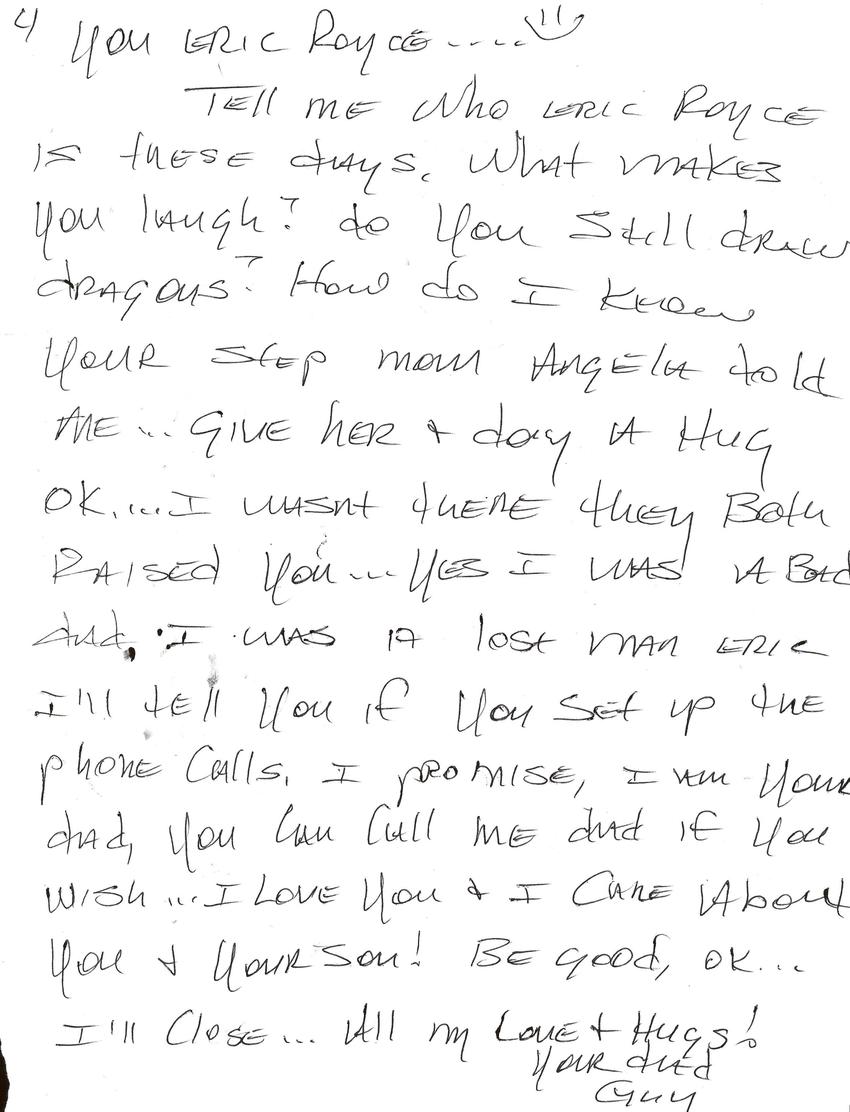 4
You ERIC ROYCE.....
TELL ME Who ERIC ROYCE
IS THESE dAYS. WhAT MAKES
You lAugh? do You Still dRAW
dRAgons? How do I KNOW
YOUR Step mom ANgElA told
ME... GIVE hER + A HUg
OK.... I WASNt thERE thEY Both
RAISEd You... YES I WAS A BAd
dAd, I WAS A lost MAN ERIC
I'll tEll You if You SEt up thE
phoNE CAlls, I pROMISE, I AM YOUR
dAd, You CAN CAll ME dAd if You
WISh... I LOVE You & I CARE About
You & YOUR SON! BE good, OK...
I'll CloSE... All my LovE + HUgS!
YOUR dAd
GUY